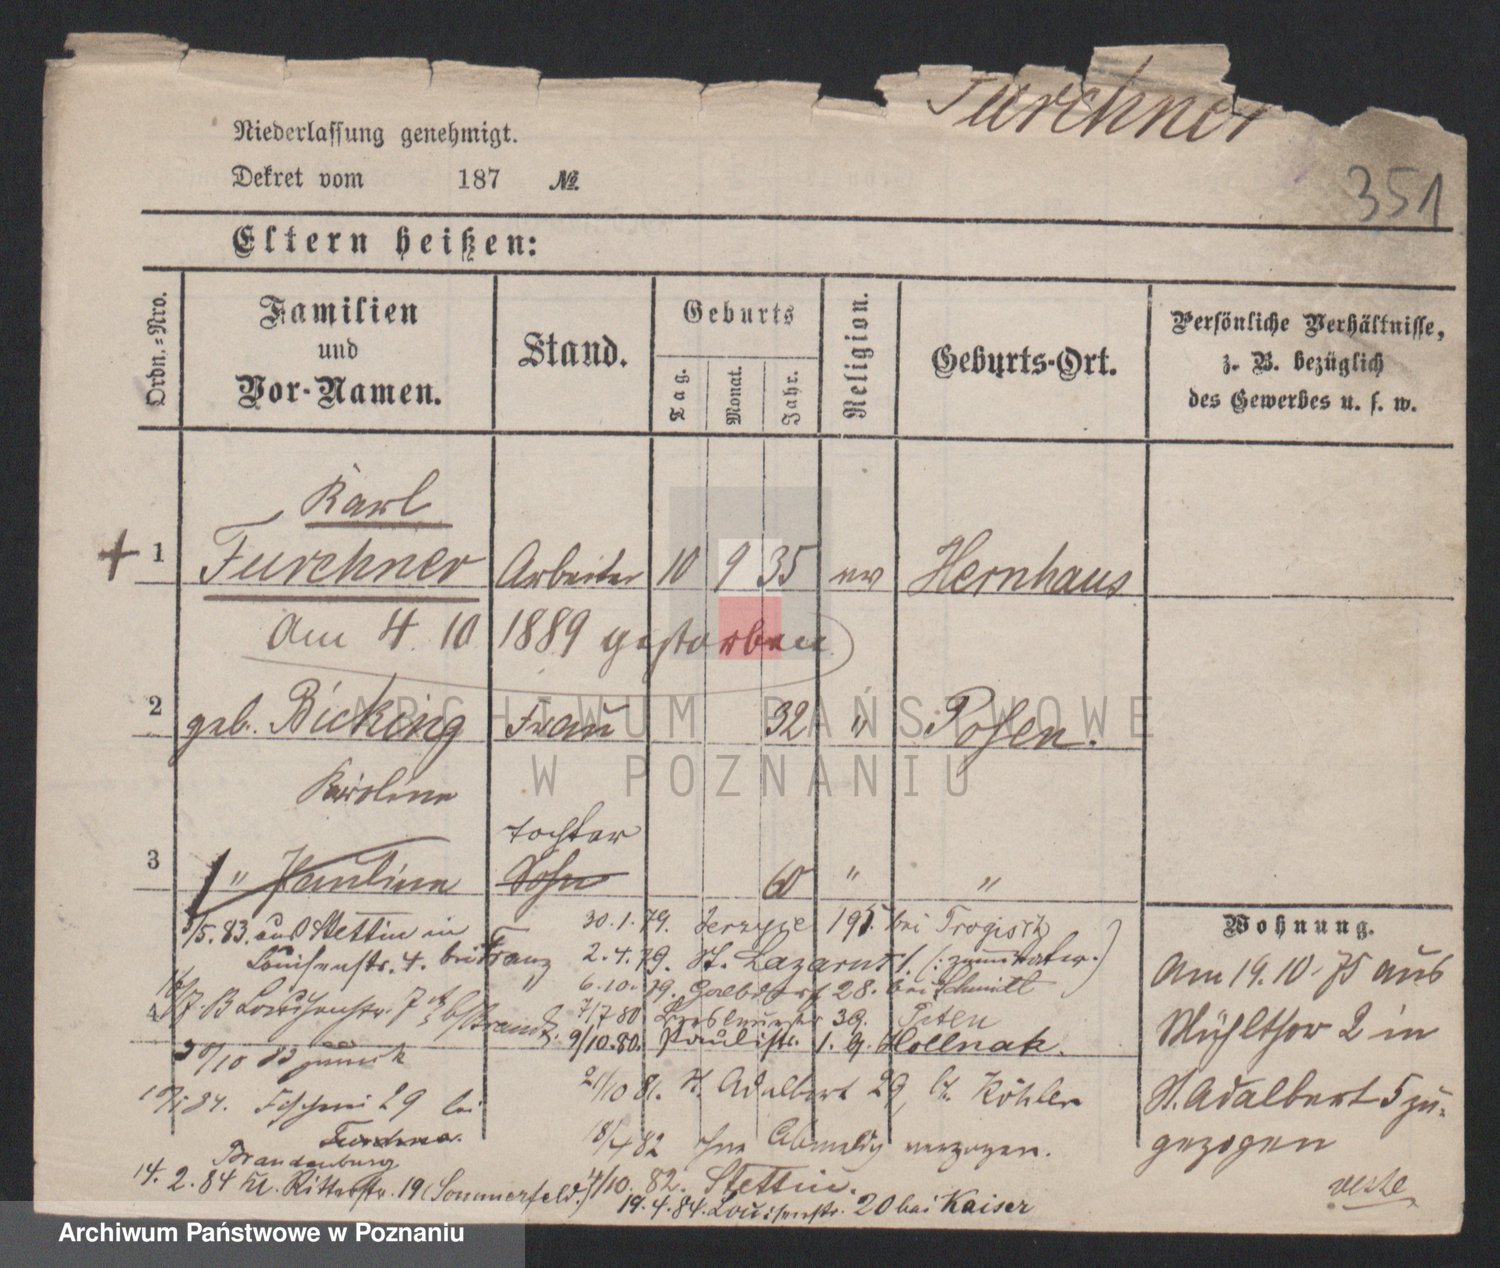 Furchner
351
Niederlassung genehmigt.
Dekret vom 187 №
Eltern heißen:
Ordn.=Nro.
Familien
und
Vor-Namen.
Stand.
Geburts
Tag.
Monat.
Jahr.
Religion.
Geburts-Ort.
Persönliche Verhältnisse,
z. B. bezüglich
des Gewerbes u. s. w.
Karl
1 Furchner Arbeiter 10 9 35 ev Hernhaus
Am 4 10 1889 gestorben
2 geb. Bicking Frau 32 " Posen.
Karoline
Tochter
3 " Pauline Sohn 60 " "
Wohnung.
Am 19.10.75 aus
Mühlthor 2 in
St. Adalbert 5 zu-
gezogen
/5.83. aus Stettin in
Louisenstr. 4. bei Franz
4
/10 83 zurück
84. 29 bei
Brandenburg
14. 2. 84 kl. Ritterstr. 19 (Sommerfeld.)
30.1.79. Jerzyce 191. bei
2.4.79. St. Lazarus
6.10.79. 28. bei Schmidt
7/7 80 39.
9/10.80. Paulistr. 1. Hollnak.
21/10 81. St. Adalbert 29, b. Köhler
18/4 82 ohne Abmeldg verzogen.
4/10. 82. Stettin.
19.4.84. Louisenstr. 20 bei Kaiser
ARCHIWUM PAŃSTWOWE
W POZNANIU
Archiwum Państwowe w Poznaniu